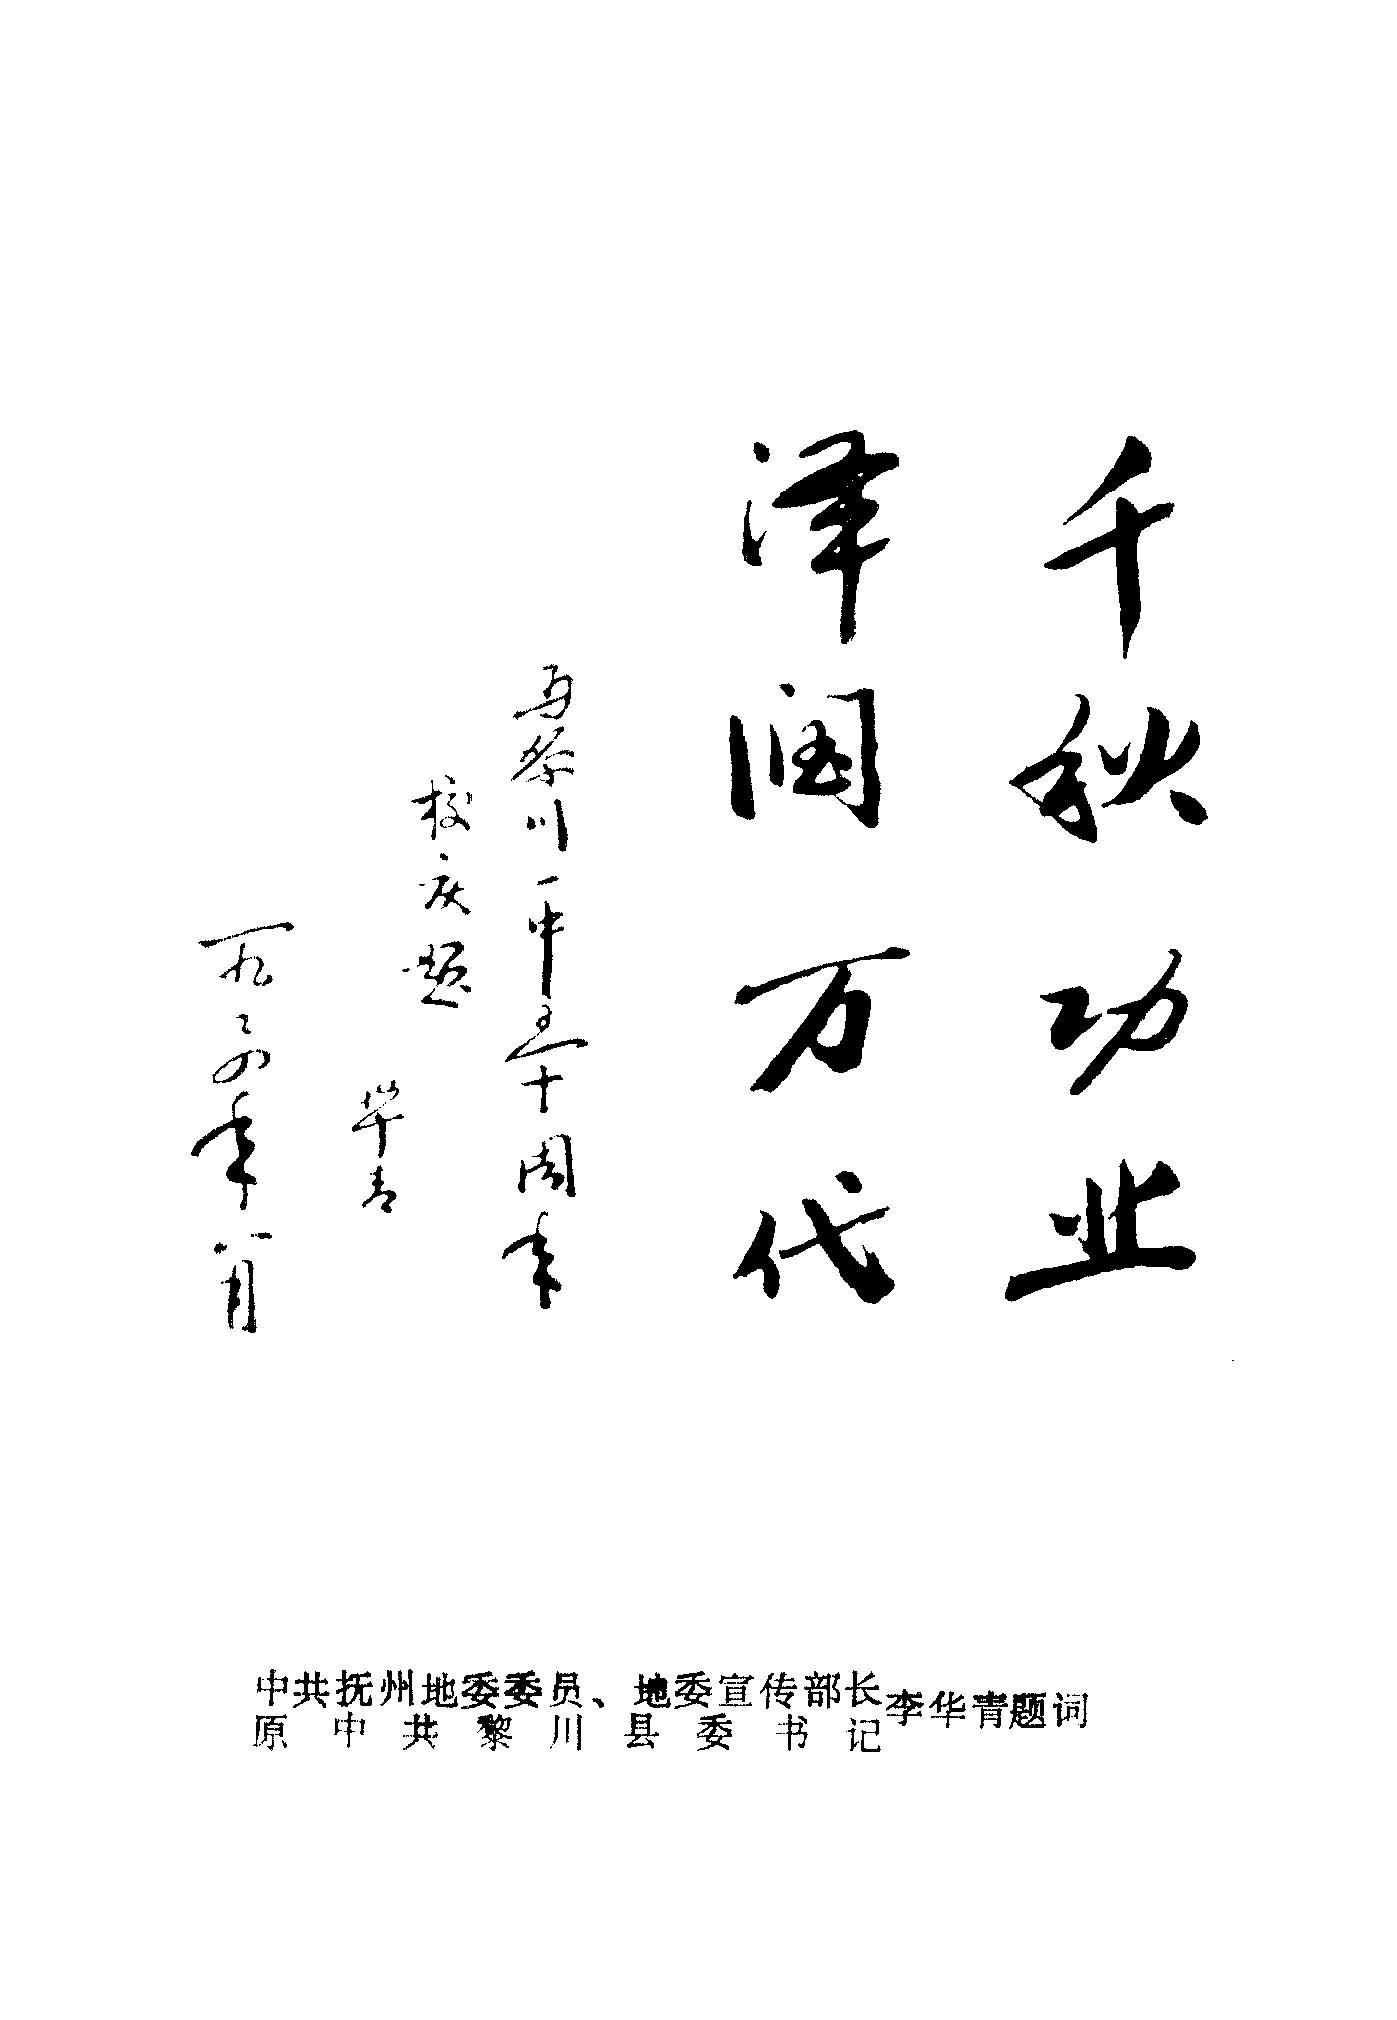 千秋功业
泽润万代
为黎川一中五十周年
校庆题
华青
一九々四年八月
中共抚州地委委员、地委宣传部长
原中共黎川县委书记
李华青题词